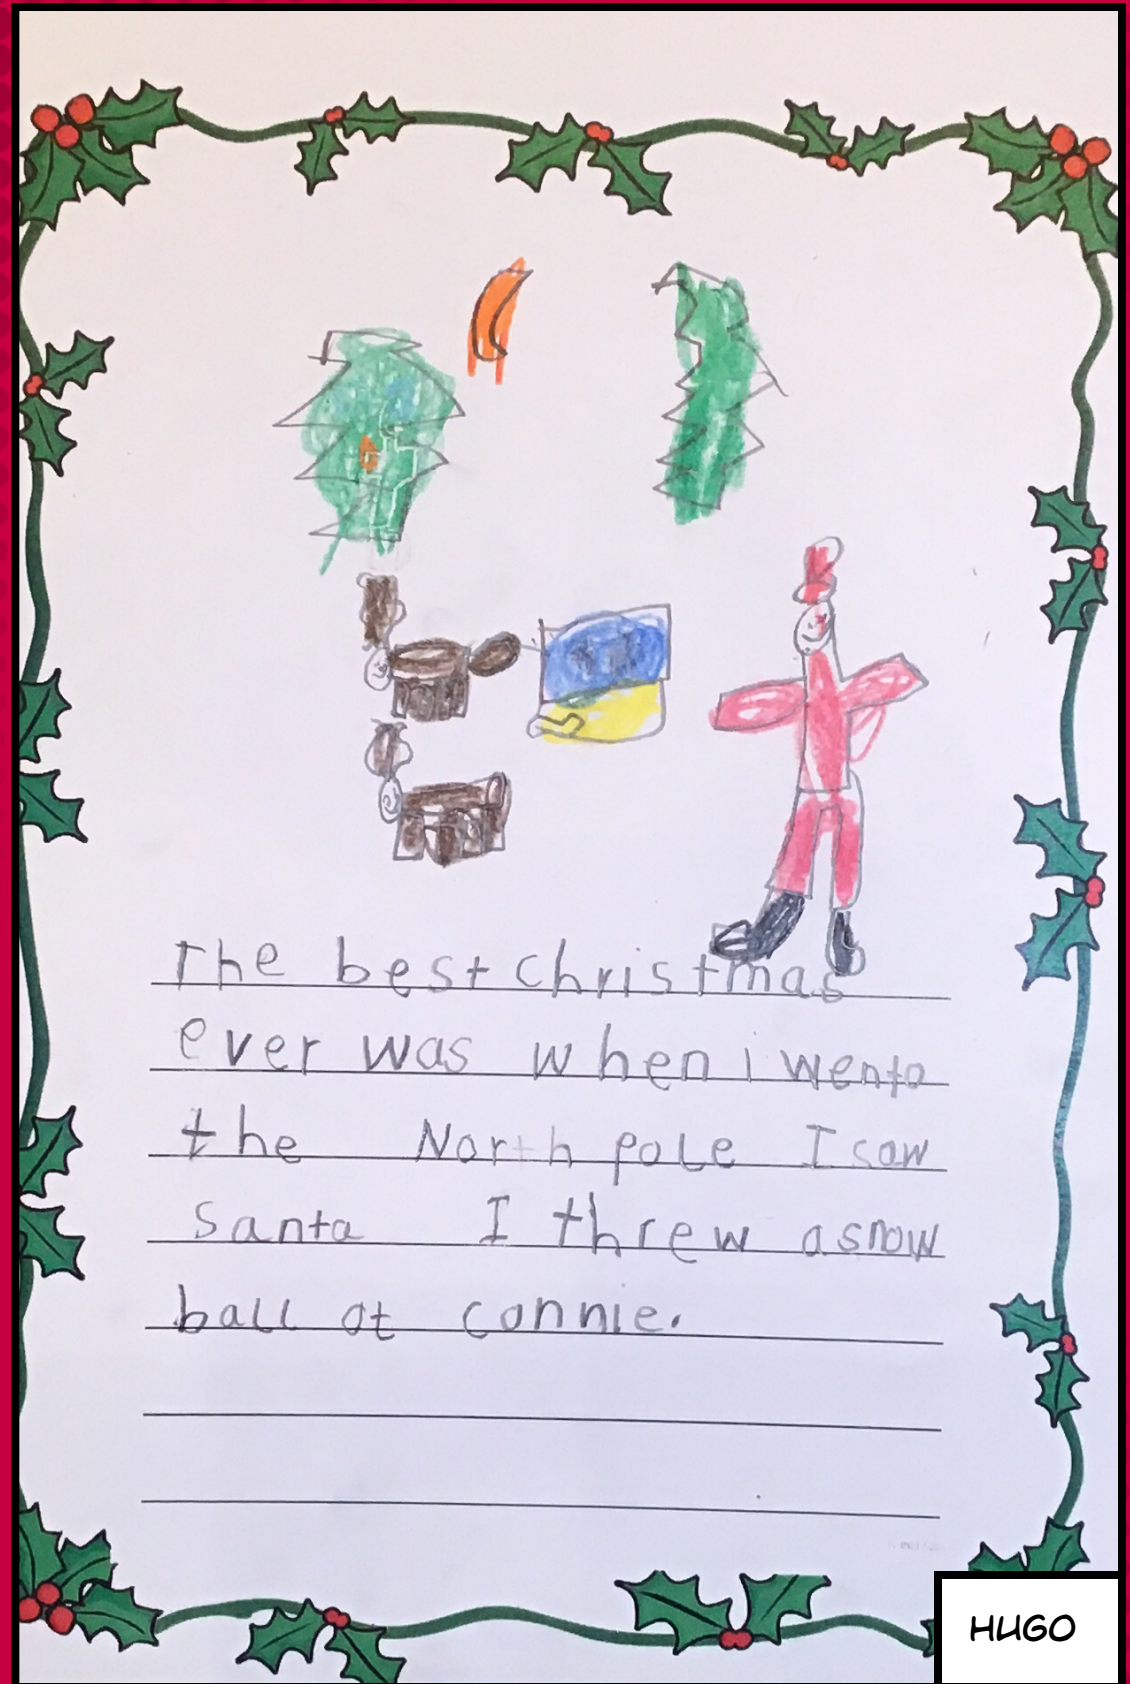 The best christmas
ever was when i wento
the North pole I saw
santa I threw a snow
ball at connie.
HUGO